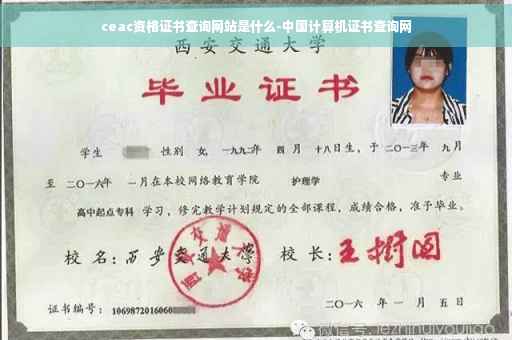 ceac资格证书查询网站是什么-中国计算机证书查询网
西安交通大学
毕业证书
学生 性别 女, 一九九二年 四月 十八日生, 于二〇一三年 九月
至 二〇一六年 一月在本校网络教育学院 护理学 专业
高中起点专科 学习, 修完教学计划规定的全部课程, 成绩合格, 准予毕业。
校名: 西安交通大学 校长: 王树国
证书编号: 1069872016060
二〇一六 年 一 月 五 日
微信号: jezhinuiyoujiao